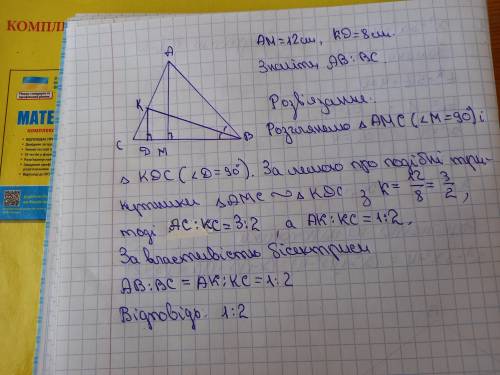 КОМПЛЕ
МАТЕ
AM=12см, KD=8см.
Знайти AB:BC.
A
K
C
D
M
B
Розв'язання.
Розглянемо △AMC (∠M=90) і
△ KDC (∠D=90°). За лемою про подібні три-
кутники △AMC ~ △ KDC з K=12/8=3/2,
тоді AC:KC=3:2, а AK:KC=1:2.
За властивістю бісектриси
AB:BC = AK:KC=1:2
Відповідь: 1:2